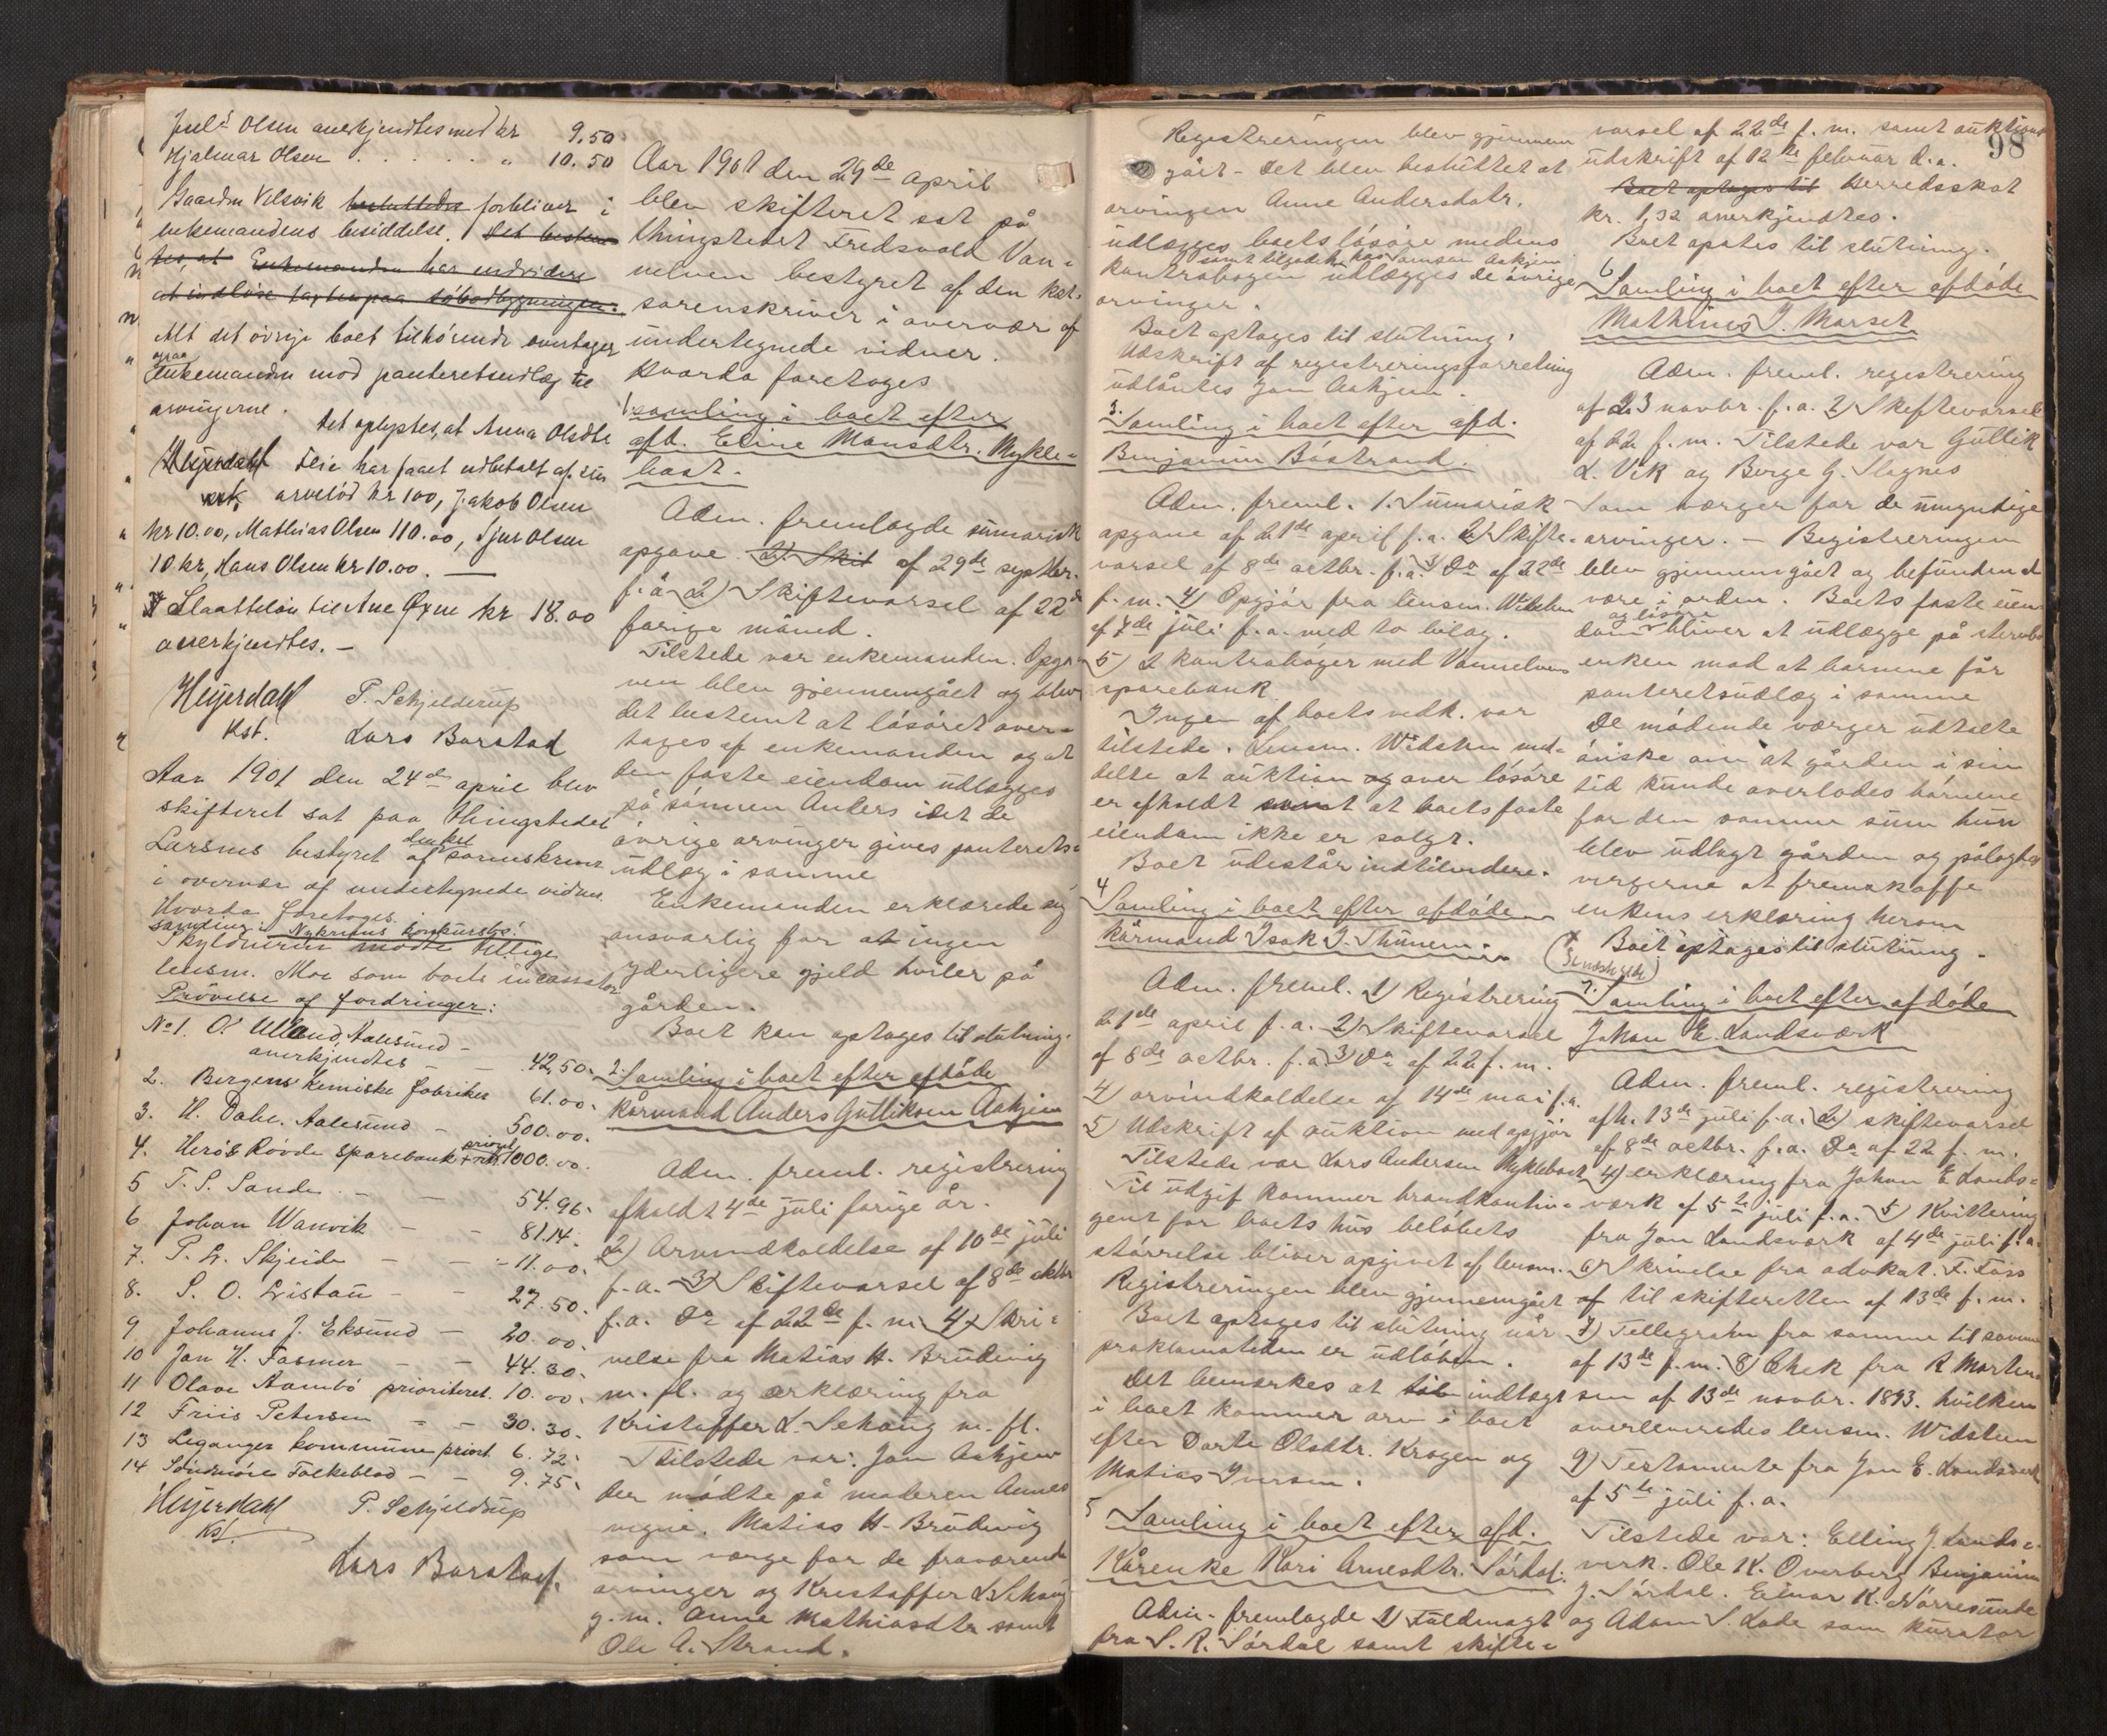 Juls Olsen anerkjendtes med kr 9.50
Hjalmar Olsen . . . . . " 10.50
Gaarden Vilsvik besluttedes forbliver i
enkemandens besiddelse. Det bestem
tes, at Enkemanden har endvidere
at indløse taxten paa søbodbygningen.
Alt det øvrige boet tilhørende overtager
ogsaa
enkemanden mod panteretsudlæg til
arvingerne.
Det oplystes, at Anna Olsdtr
Heyerdahl
kst.
Seie har faaet udbetalt af sin
arvelod kr 100, Jakob Olsen
kr 10.00, Mathias Olsen 110.00, Sjur Olsen
10 kr, Hans Olsen kr 10.00. —
Slaatteløn til Ane Øxne kr 18.00
anerkjendtes. —
Heyerdahl P. Schjelderup
kst. Lars Barstad
Aar 1901 den 24de april blev
skifteret sat paa thingstedet
Larsnes bestyret af den kst sorenskriver
i overvær af undertegnede vidner
Hvorda foretoges
samling i Nykrems konkursbo:
Skyldneren mødte tillige
lensm. Moe som boets incassator
Prövelse af fordringer:
No 1. O. Ulland, Aalesund -
anerkjendtes - - 42,50.
2. Bergens kemiske fabriker 61.00.
3. H. Dahl. Aalesund - 500.00.
4. Herø & Rövde sparebank + rth. priorit. 1000.00.
5 T. S. Sande - - 54.96.
6 Johan Wanvik - - 81.14.
7. P. L. Skjeide - - 11.00.
8. S. O. Listau - - 27.50.
9 Johannes J. Eksund - 20.00.
10 Jan H. Fasmer - - 44.30.
11 Olave Aambö prioriteret. 10.00.
12 Friis Petersen - - 30.30.
13 Leganger kommune priort. 6.72.
14 Söndmöre Folkeblad - - 9.75.
Heyerdahl P. Schjelderup
kst.
Lars Barstad.
Aar 1901 den 29de april
blev skifteret sat på
thingstedet Fredsvold Van-
nelven bestyret af den kst.
sorenskriver i overvær af
undertegnede vidner.
Hvorda foretoges
1 samling i boet efter
afd. Eline Monsdtr. Mykle-
bost.
Adm. fremlagde sumarisk
opgave 2) Skif af 29de septbr.
f. å 2) Skiftevarsel af 22de
forige måned.
Tilstede var enkemanden. Opga-
ven blev gjennemgået og blev
det bestemt at løsøret over-
tages af enkemanden og at
den faste eiendom udlægges
på sønnen Anders idet de
øvrige arvinger gives panterets-
udlæg i samme
Enkemanden erklærede sig
ansvarlig for at ingen
yderligere gjeld hviler på
gården.
Boet kan optages til slutning.
2. Samling i boet efter afdøde
kårmand Anders Gulliksen Aahjem
Adm. freml. registrering
afholdt 4de juli forige år.
2) Arvindkaldelse af 10de juli
f. a. 3) Skiftevarsel af 8de oktbr
f. a. Do af 22de f. m. 4) Skri-
velse fra Matias H. Brudevig
m. fl. og erklæring fra
Kristoffer L. Sehaug m. fl.
Tilstede var: Jon Aahjem
der mødte på moderen Annes
vegne. Matias H. Brudevig
som værge for de fraværende
arvinger og Kristoffer L. Sehaug
g. m. Anne Mathiasdtr samt
Ole A. Strand.
98
Registreringen blev gjennem
gået - det blev besluttet at
arvingen Anne Andersdatr.
udlægges boets løsøre medens
samt tilgodeh. hos Aahjem
kontrabogen udlægges de øvrige
arvinger.
Boet optages til slutning.
Udskrift af registreringsforretning
udlåntes Jon Aahjem.
3. Samling i boet efter afd.
Benjamin Båstrand.
Adm. freml. 1. Sumarisk
opgave af 21de april f. a. 2) Skifte-
varsel af 8de octbr. f. a. 3) Do af 22de
f. m. 4) Opgjör fra lensm. Widsteen
af 7de juli f. a. med to bilag.
5) 2 kontrabøger med Vannelven
sparebank
Ingen af boets vedk. var
tilstede. Lensm. Widsteen med-
delte at auktion og over løsøre
er afholdt samt at boets faste
eiendom ikke er solgt.
Boet udestår indtilvidere.
4 Samling i boet efter afdøde
kårmand Isak J. Thunem.
Adm. freml. 1) Registrering
21de april f. a. 2) Skiftevarsel
af 8de octbr. f. a. 3) Do af 22 f. m.
4) arvindkaldelse af 14de mai f. a.
5) Udskrift af auktion med opgjör
Tilstede var Lars Andersen Myklebost
Til udgif kommer brandkontin-
gent for boets hus beløbets
størrelse bliver opgivet af lensm.
Registreringen blev gjennemgået
Boet optages til slutning når
proklamatiden er udløben.
Det bemærkes at til indtægt
i boet kommer arv i boet
efter Dorte Olsdtr. Krogen og
Matias Iversen.
5 Samling i boet efter afd.
Kårenke Kari Arnesdtr. Sørdal.
Adm. fremlagde 1) Fuldmagt
fra S. R. Sørdal samt skifte-
varsel af 22de f. m. samt auktions
udskrift af 12te februar d. a.
Boet optages til Herredsskat
kr. 1,32 anerkjendtes.
Boet opates til slutning.
6 Samling i boet efter afdøde
Mathines J. Marset
Adm. freml. registrering
af 23 novbr. f. a. 2) Skiftevarsel
af 22 f. m. Tilstede var Gullik
L. Vik og Borge G. Slagnes
som værger for de umyndige
arvinger. - Registreringen
blev gjennemgået og befunden at
være i orden. Boets faste eien-
og løsøre
dom bliver at udlægge på stervbo
enken mod at børnene får
panteretsudlæg i samme
De mødende værger udtalte
ønske om at gården i sin
tid kunde overlades børnene
for den samme sum hun
blev udlagt gården og pålagdes
vergerne at fremskaffe
enkens erklæring herom
Boet optages til slutning.
7. Samling i boet efter afdøde
Johan E. Landsværk
Adm. freml. registrering
afh. 13de juli f. a. 2) skiftevarsel
af 8de octbr. f. a. Do af 22 f. m.
4) erklæring fra Johan E Lands-
værk af 5te juli f. a. 5) Kvittering
fra Jon Landsværk af 4de juli f. a.
6) Skrivelse fra advokat. F. Foss
af til skifteretten af 13de f. m.
7) Tellegrahm fra samme til samme
af 13de f. m. 8) Chek fra R Morten-
sen af 13de novbr. 1893. hvilken
overleveredes lensm. Widsteen
9) Testamente fra Jon E. Landsverk
af 5te juli f. a.
Tilstede var: Elling J. Lands-
verk. Ole K. Overberg Benjamin
J. Sørdal. Elnar K. Nørresunde
og Adam S. Lade som kurator